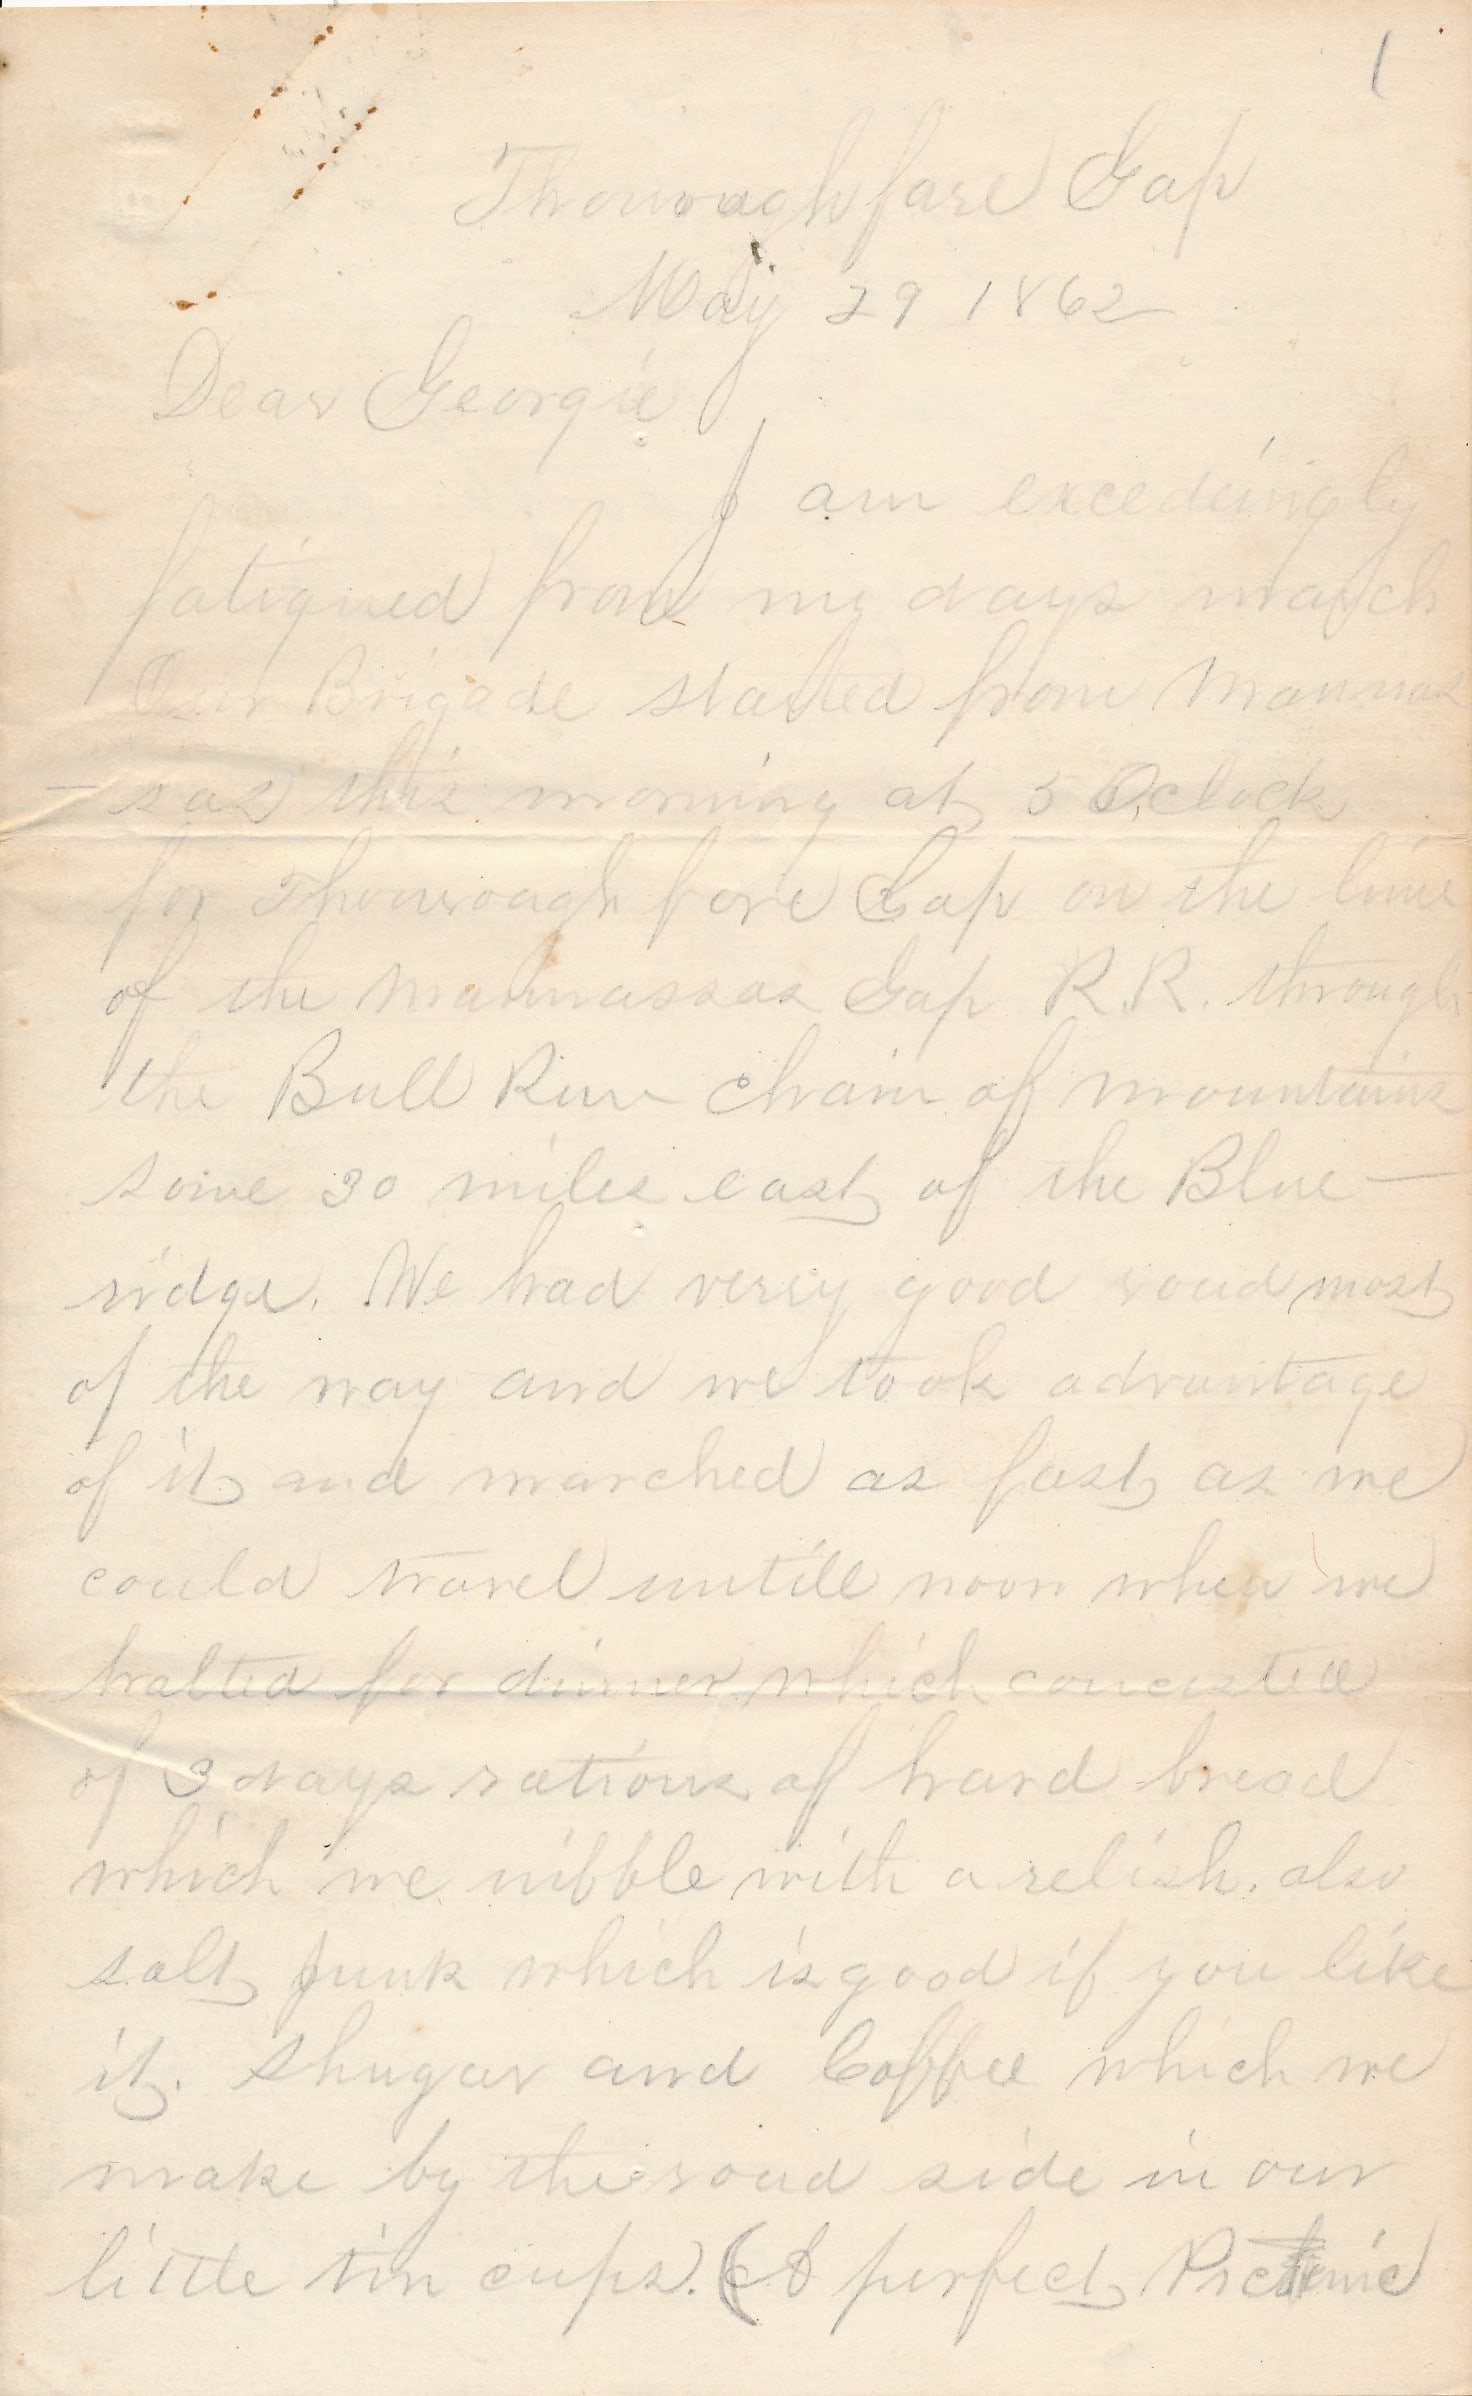 1
Thourough fare Gap
May 29 1862
Dear Georgie
I am excedeingly
fatigued from my days march
Our Brigade started from Mannas
- sas this morning at 5 O,clock
for Thourough fare Gap on the line
of the Mannassas Gap R.R. through
the Bull Run chain of mountains
some 30 miles east of the Blue -
ridge. We had verry good road most
of the way and we took advantage
of it and marched as fast as we
could travel untill noon when we
halted for dinner which concisted
of 3 days rations of hard bread
which we nibble with a relish. also
salt junk which is good if you like
it. Shugar and Coffee which we
make by the road side in our
little tin cups. (A perfect Picnic